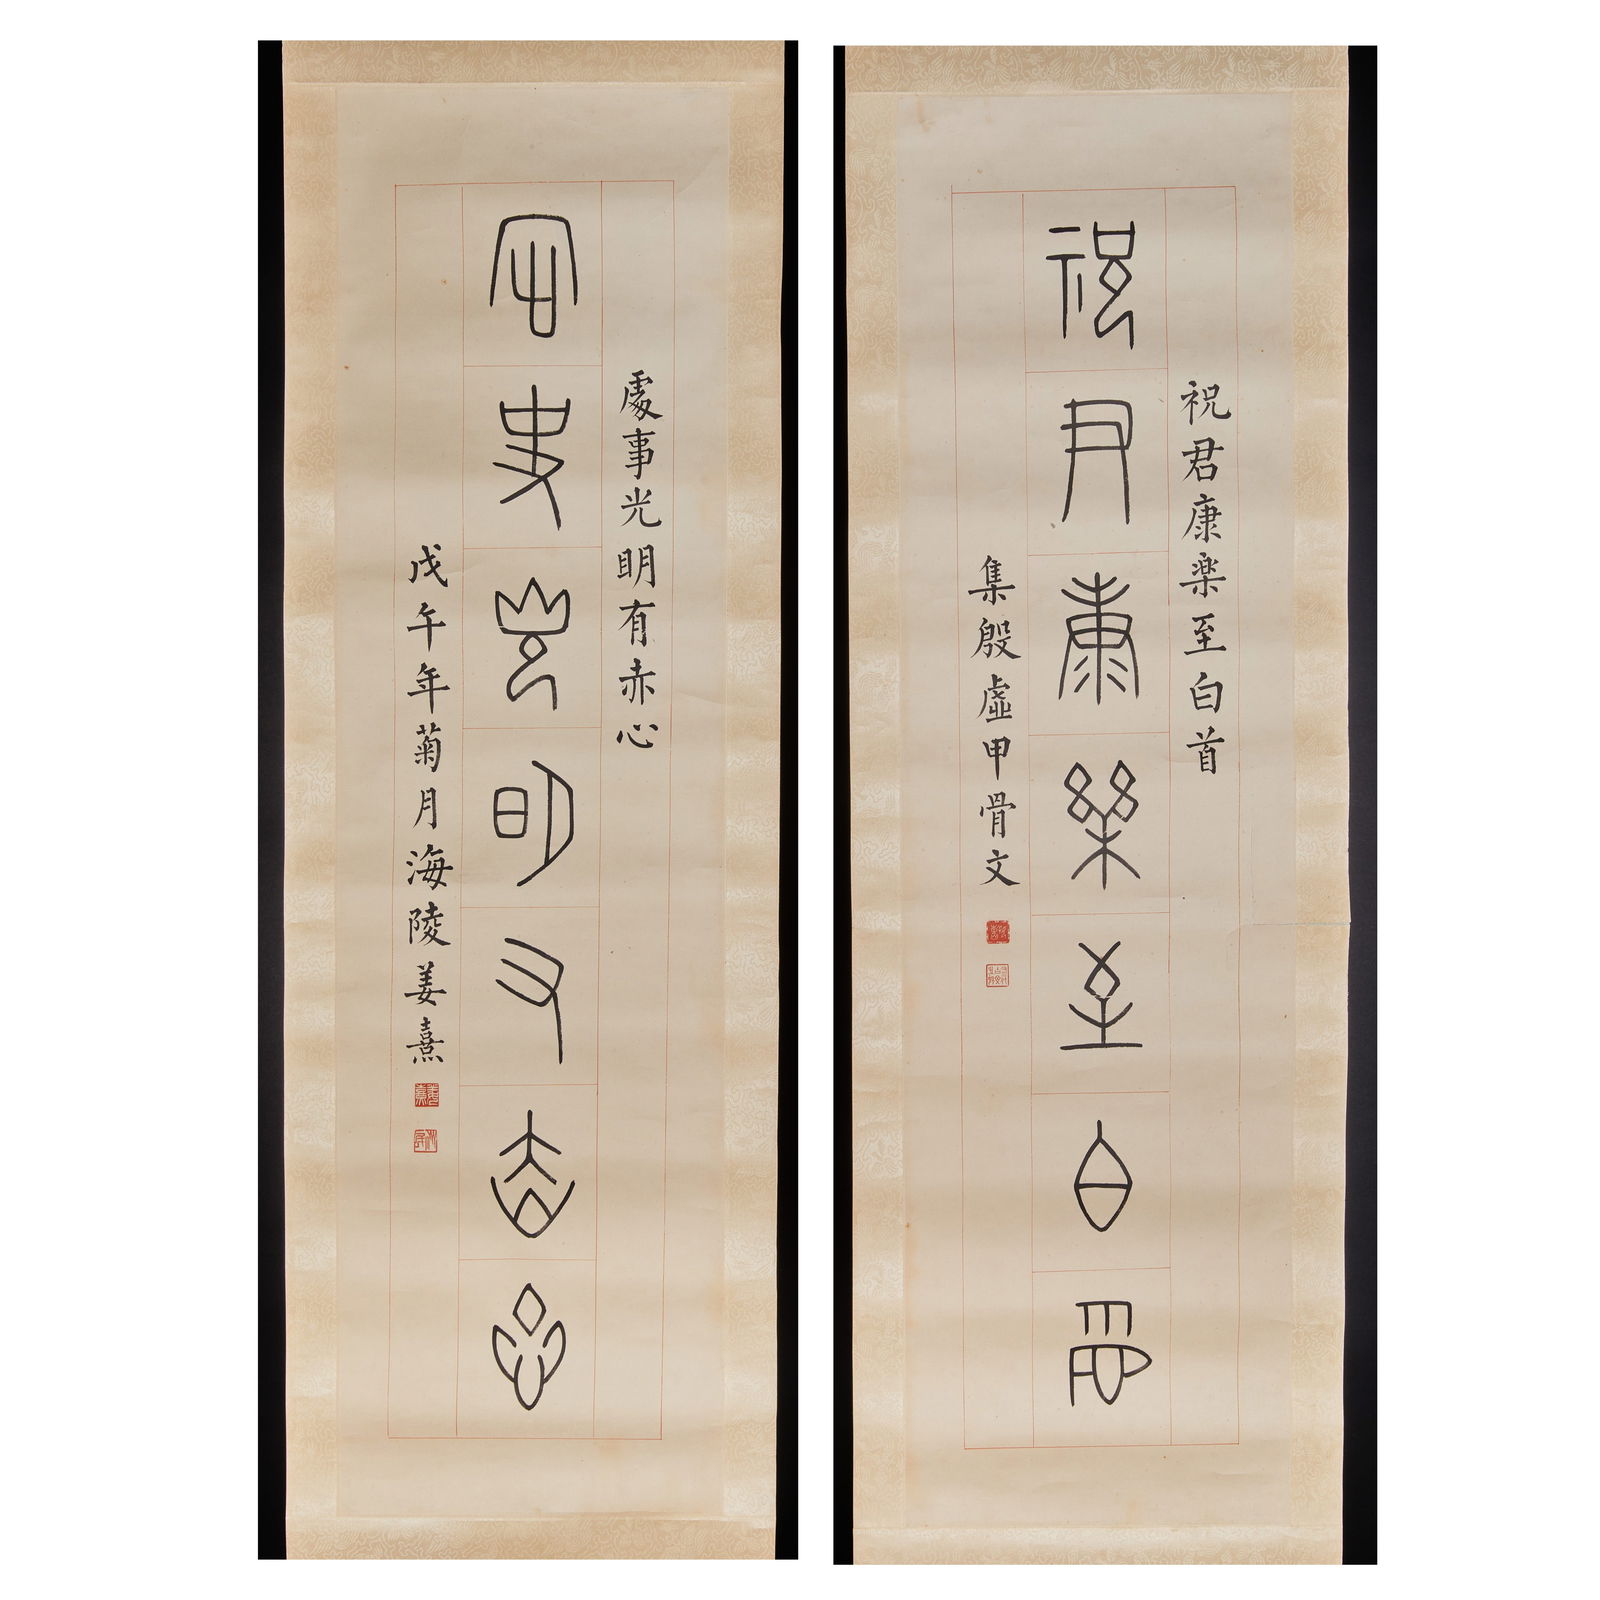 祝君康楽至白首
祝君康樂至白首
集殷虛甲骨文
處事光明有赤心
處事光明有赤心
戊午年菊月海陵姜熹